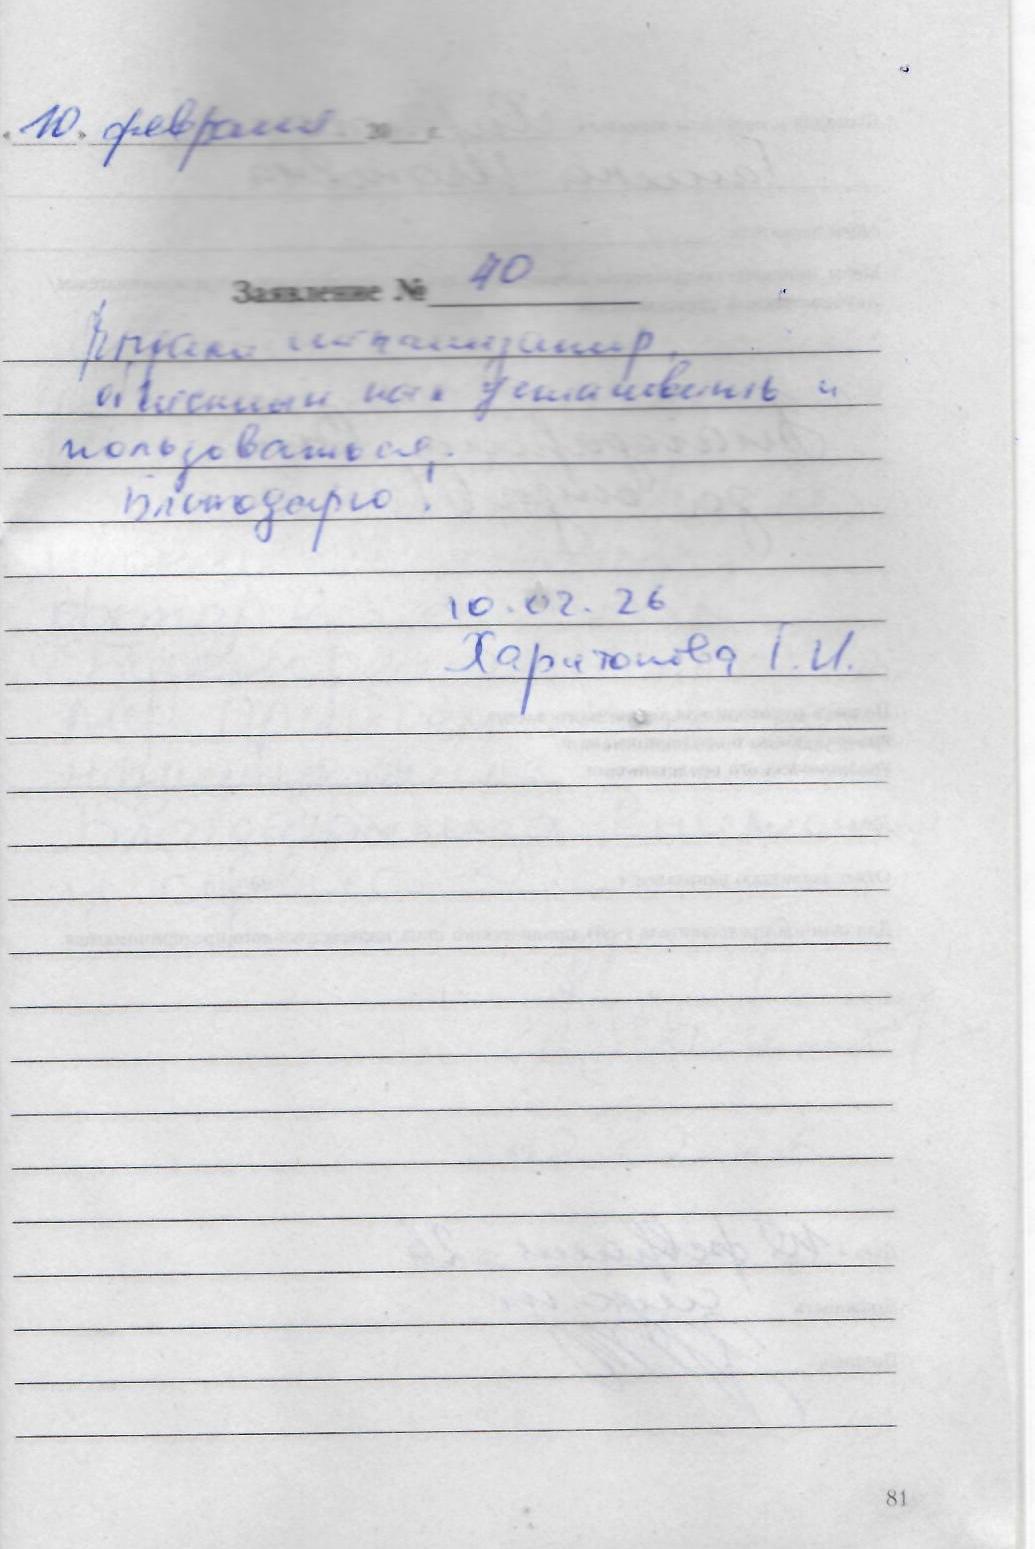 «10» февраля 20 г.
Заявление № 40
Купила
объяснили как установить и
пользоваться.
Благодарю!
10.02.26
Харитонова Г.И.
81